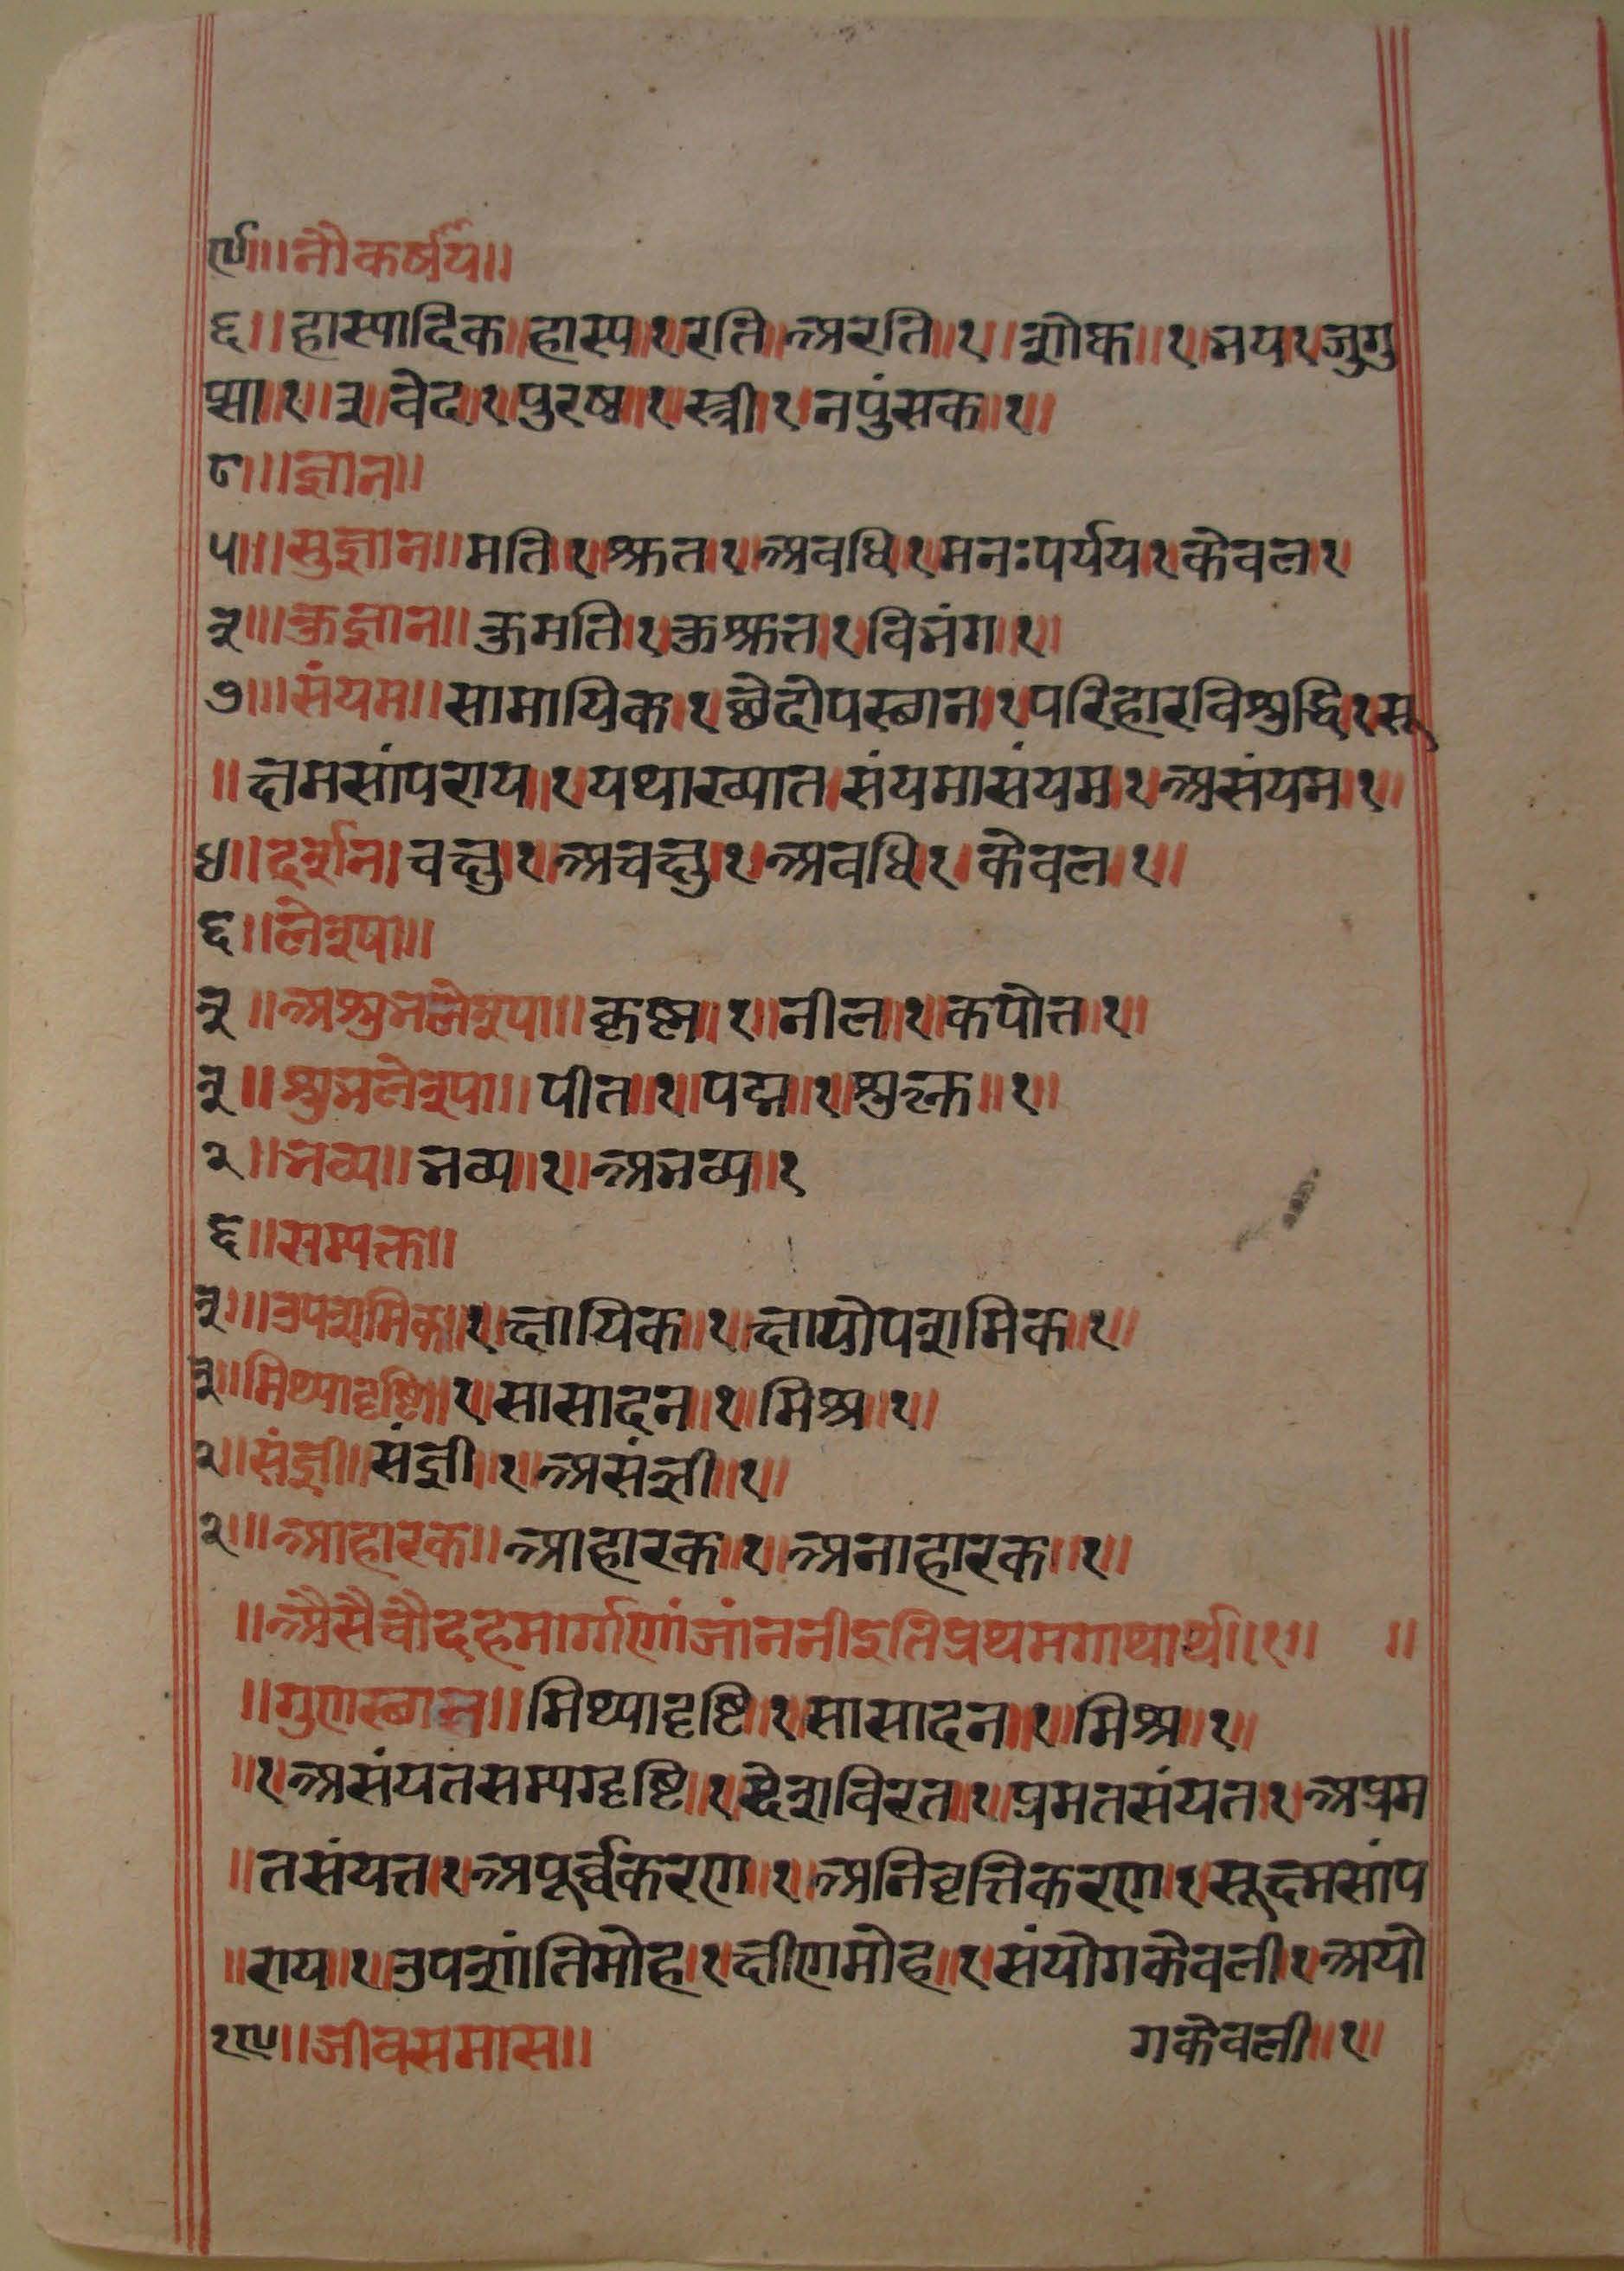 ९॥ नौकर्षाय॥
६॥ हास्यादिक॥ हास्य॥१॥ रति॥ अरति॥१॥ शोक॥१॥ भय॥१॥ जुगु
प्सा॥१॥ ३॥ वेद॥१॥ पुरष॥१॥ स्त्री॥१॥ नपुंसक॥१॥
८॥ ज्ञान॥
५॥ सुज्ञान॥ मति॥१॥ श्रुत॥१॥ अवधि॥१॥ मनःपर्यय॥१॥ केवल॥१
३॥ कुज्ञान॥ कुमति॥१॥ कुश्रुत॥१॥ विभंग॥१॥
७॥ संयम॥ सामायिक॥१॥ छेदोपस्थान॥१॥ परिहारविशुद्धि॥१॥ सू
॥ क्षमसांपराय॥१॥ यथाख्यात॥ संयमासंयम॥१॥ असंयम॥१॥
४॥ दर्शन॥ चक्षु॥१॥ अचक्षु॥१॥ अवधि॥१॥ केवल॥१॥
६॥ लेश्या॥
३॥ अशुभलेश्या॥ कृष्ण॥१॥ नील॥१॥ कपोत॥१॥
३॥ शुभलेश्या॥ पीत॥१॥ पद्म॥१॥ शुक्ल॥१॥
२॥ भव्य॥ भव्य॥१॥ अभव्य॥१
६॥ सम्यक्त॥
३॥ उपशमिक॥१॥ क्षायिक॥१॥ क्षायोपशमिक॥१॥
३॥ मिथ्यादृष्टि॥१॥ सासादन॥१॥ मिश्र॥१॥
२॥ संज्ञी॥ संज्ञी॥१॥ असंज्ञी॥१॥
२॥ आहारक॥ आहारक॥१॥ अनाहारक॥१॥
॥ अैसैचौदहमार्गाणांजांननीइतिप्रथमगाथार्थ॥१॥ ॥
॥ गुणस्थान॥ मिथ्यादृष्टि॥१॥ सासादन॥१॥ मिश्र॥१॥
॥१॥ असंयतसम्यग्दृष्टि॥१॥ देशविरत॥१॥ प्रमतसंयत॥१॥ अप्रम
॥ तसंयत॥१॥ अपूर्व्वकरण॥१॥ अनिवृत्तिकरण॥१॥ सूक्ष्मसांप
॥ राय॥१॥ उपशांतिमोह॥१॥ क्षीणमोह॥१॥ संयोगकेवली॥१॥ अयो
१९॥ जीवसमास॥ गकेवली॥१॥